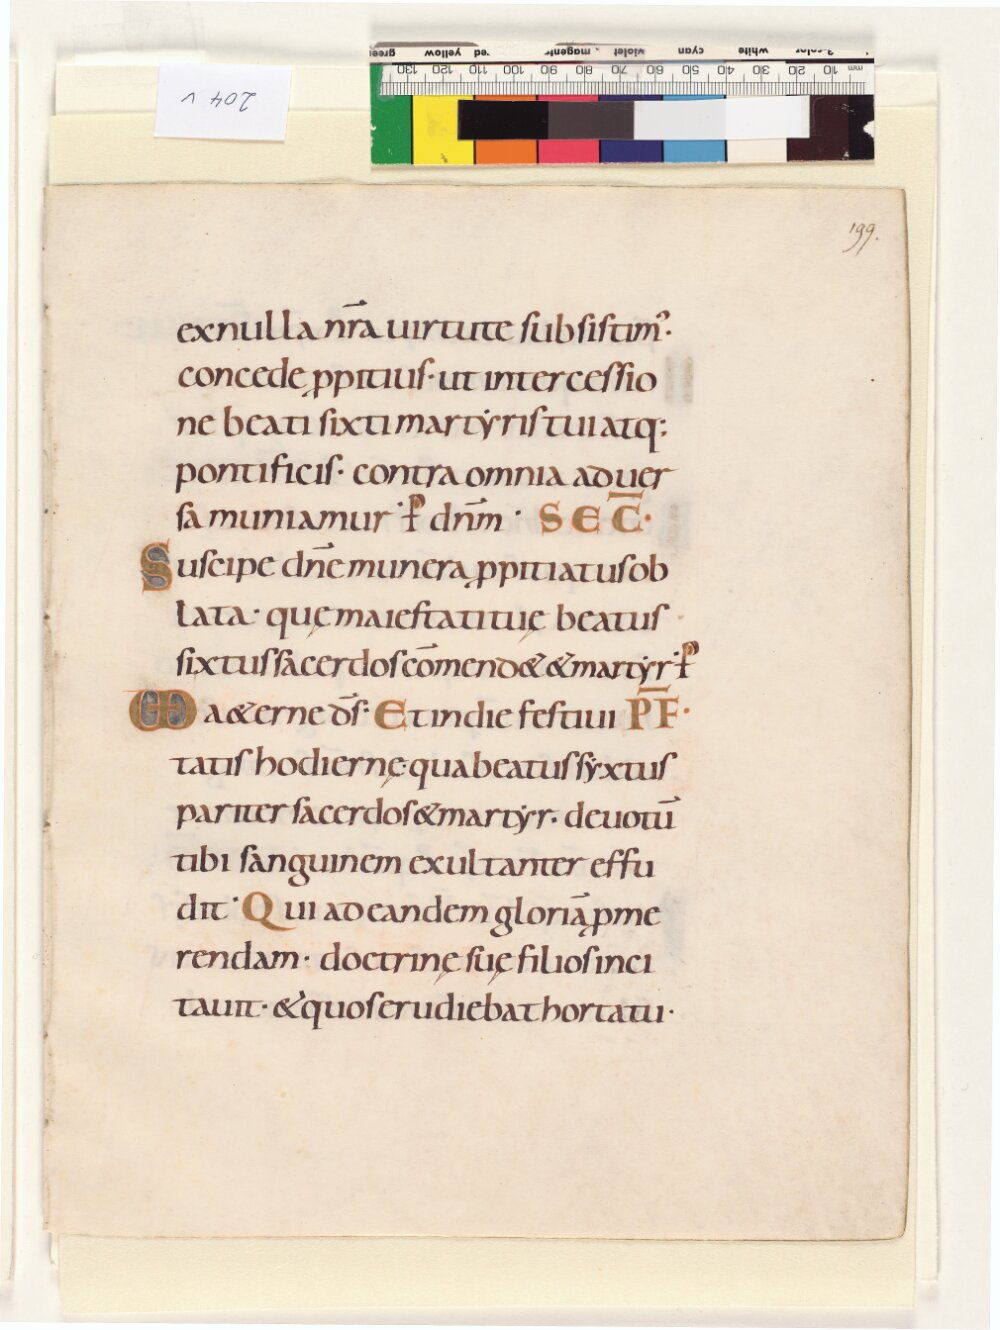 204 v
199.
ex nulla nr̄a uirtute subsistim᷒·
concede ꝓpitius· ut intercessio
ne beati sixti martẏris tui atq:
pontificis· contra omnia aduer
sa muniamur· ꝑ dn̄m · SEC̄·
Suscipe dn̄e munera ꝓpitiatus ob
lata· quę maiestati tuę beatus
sixtus sacerdos cōmendet & martẏr· ꝑ
UD a&erne d̄s· Et in die festiui P̄F·
tatis hodiernę· qua beatus sẏxtus
pariter sacerdos & martẏr· deuotū
tibi sanguinem exultanter effu
dit· Qui ad eandem gloriā ꝓme
rendam· doctrinę suę filios inci
tauit· & quos erudiebat hortatu·